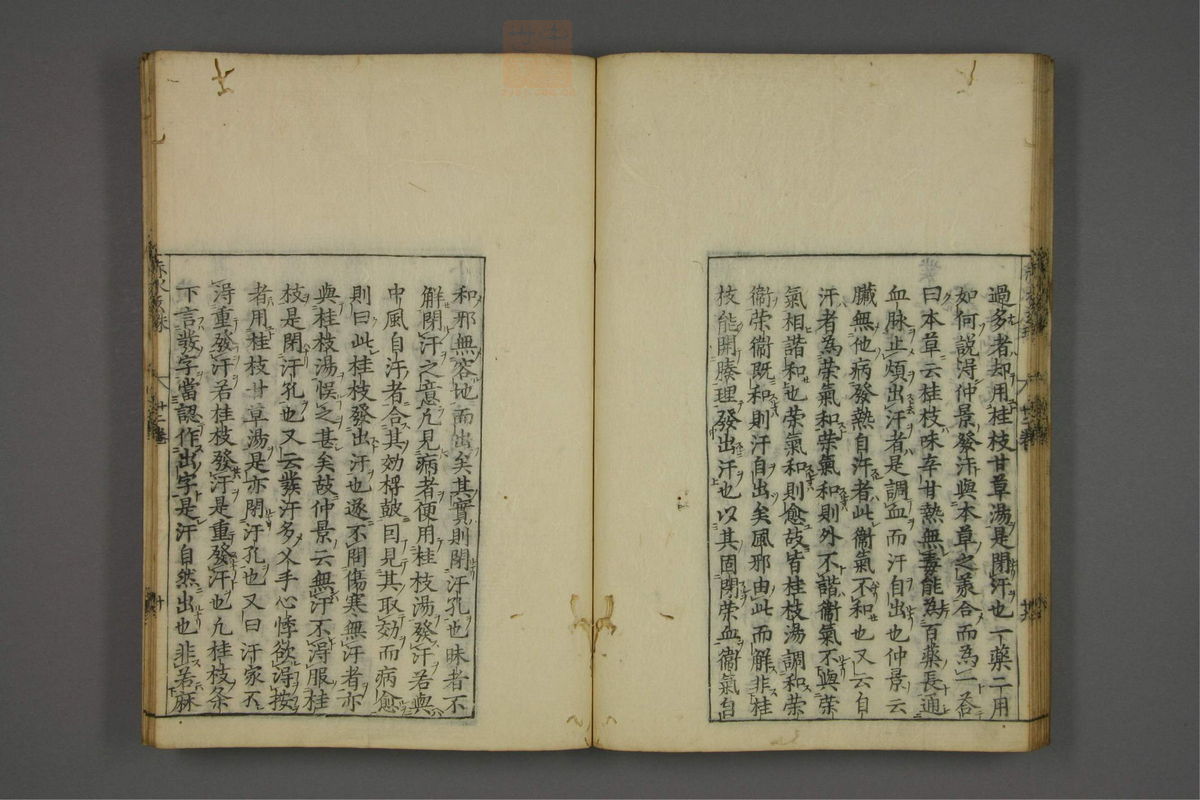 過多者却用桂枝甘草湯是閉汗也一藥二用
如何說得仲景發汗與本草之義合而為一荅
曰本草云桂枝味辛甘熱無毒能為百藥長通
血脉止煩出汗者是調血而汗自出也仲景云
臟無他病發熱自汗者此衞氣不和也又云自
汗者為榮氣和榮氣和則外不諧衞氣不與榮
氣相諧和也榮氣和則愈故皆桂枝湯調和榮
衞榮衞既和則汗自出矣風邪由此而解非桂
枝能開腠理發出汗也以其固閉榮血衞氣自
和邪無容地而出矣其實則閉汗孔也昧者不
解閉汗之意凢見病者便用桂枝湯發汗若與
中風自汗者合其効桴鼓因見其取効而病愈
則曰此桂枝發出汗也遂不問傷寒無汗者亦
與桂枝湯悞之甚矣故仲景云無汗不淂服桂
枝是閉汗孔也又云發汗多叉手心悸欲淂按
者用桂枝甘草湯是亦閉汗孔也又曰汗家不
淂重發汗若桂枝發汗是重發汗也凢桂枝条
下言發字當認作出字是汗自然出也非若麻